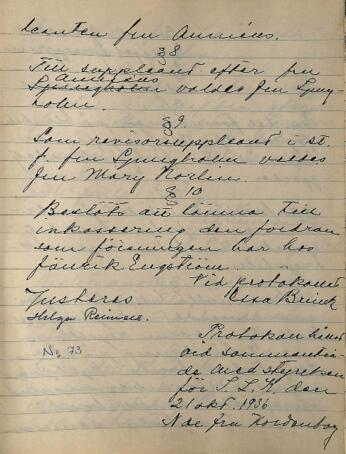 fru Annnéus.
§ 8
Till suppleant efter fru
Annnéus
Ljungholm valdes fru Ljung-
holm.
§ 9.
Som revisorsuppleant i st.
f. fru Ljungholm valdes
fru Mary Norlin.
§ 10
Beslöts att lämna till
inkassering den fordran
som föreningen har hos
fänrik Engström.
Vid protokollet
Brinck
Justeras
Helga
No 73
Protokoll
vid sammanträ-
de med styrelsen
för S. L. K. den
21 okt. 1936
fru